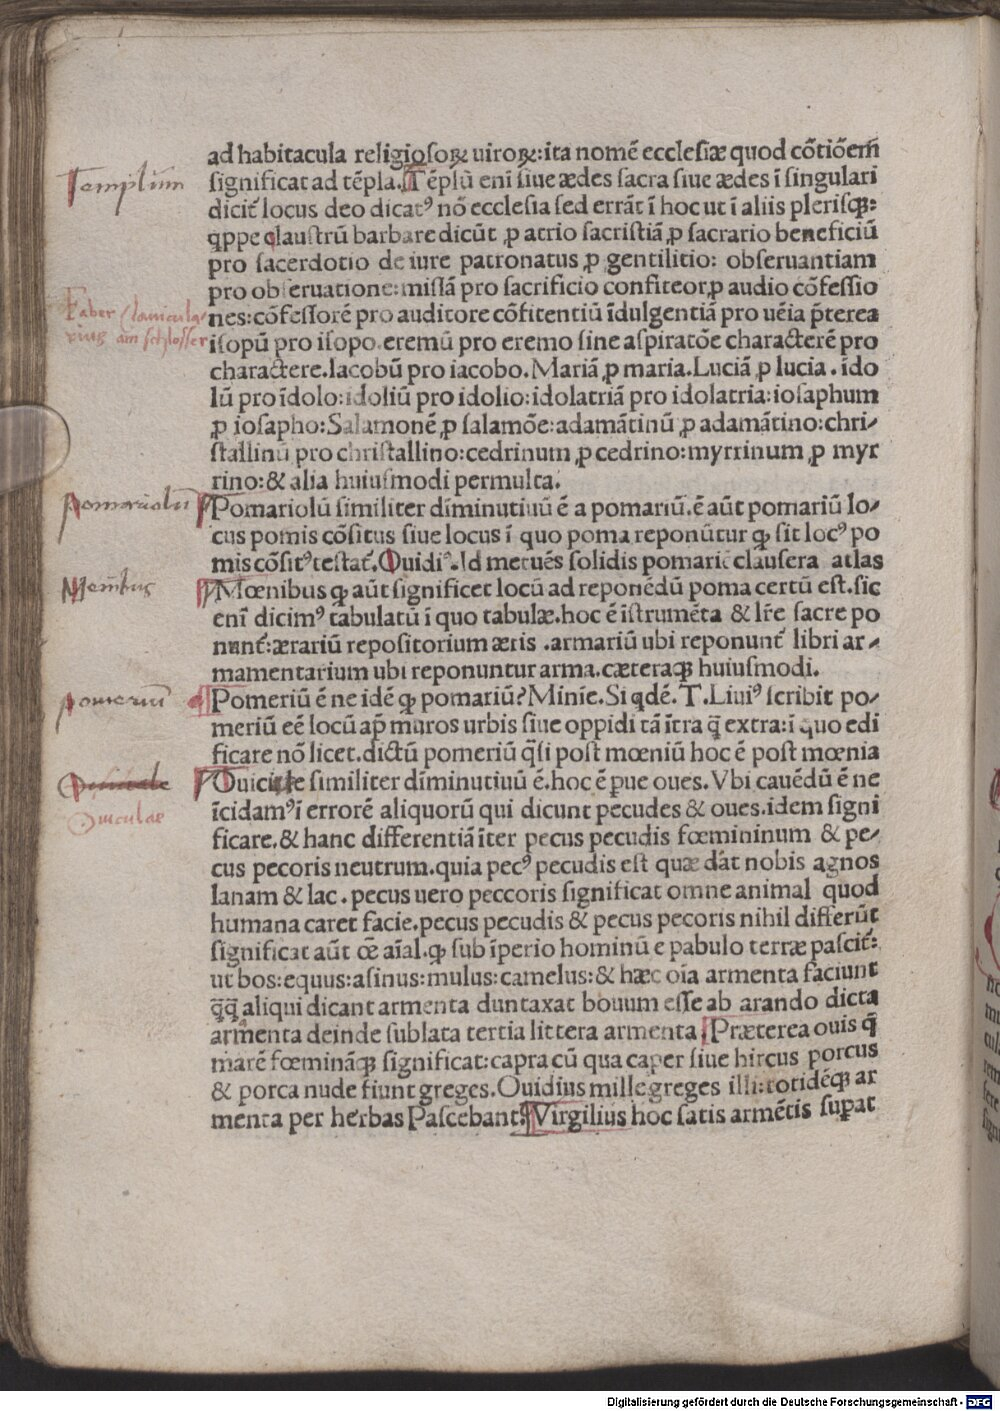 ad habitacula religiosoꝝ uiroꝝ:ita nomē ecclesiæ quod cōtiōem̄
Templum
significat ad tēpla.Tēplū enī siue ædes sacra siue ædes ī singulari
dicit̄ locus deo dicatꝰ nō ecclesia sed errāt ī hoc ut ī aliis plerisqꝫ:
qͥppe claustrū barbare dicūt ꝓ atrio sacristiā ꝓ sacrario beneficiū
pro sacerdotio de iure patronatus ꝓ gentilitio: obseruantiam
pro obseruatione:missā pro sacrificio confiteor ꝓ audio cōfessio
Faber clauicula-
nes:cōfessorē pro auditore cōfitentiū īdulgentiā pro uēia p̄terea
rius am schlosser
isopū pro isopo.eremū pro eremo sine aspiratōe characterē pro
charactere.Iacobū pro iacobo.Mariā ꝓ maria.Luciā ꝓ lucia.ido
lū pro īdolo:idoliū pro idolio:idolatriā pro idolatria:iosaphum
ꝓ iosapho:Salamonē ꝓ salamōe:adamātinū ꝓ adamātino:chri-
stallinū pro christallino:cedrinum ꝓ cedrino:myrrinum ꝓ myr
rino:& alia huiusmodi permulta.
pomariolū
Pomariolū similiter dīminutiuū ē a pomariū.ē aūt pomariū lo-
cus pomis cōsitus siue locus ī quo poma reponūtur ꝙ sit locꝰ po
mis cōsitꝰ testat̄.Ouidiꝰ.Id metuēs solidis pomaria clausera atlas
Menibus
Mœnibus ꝙ aūt significet locū ad reponēdū poma certū est.sic
enī dicimꝰ tabulatū ī quo tabulæ.hoc ē īstrumēta & lr̄e sacre po
nunt̄:ærariū repositorium æris .armariū ubi reponunt̄ libri ar-
mamentarium ubi reponuntur arma.cæteraqꝫ huiusmodi.
pomeriū
Pomeriū ē ne idē ꝙ pomariū?Minīe.Si qͥdē.T.Liuiꝰ scribit po-
meriū eē locū ap̄ muros urbis siue oppidi tā ītra q̄ extra:ī quo edi
ficare nō licet.dictū pomeriū q̄si post mœniū hoc ē post mœnia
Ouiculæ similiter dīminutiuū ē.hoc ē ꝑue oues.Vbi cauēdū ē ne
Ouiculae
īcidamꝰ ī errorē aliquorū qui dicunt pecudes & oues.idem signi
ficare.& hanc differentiā īter pecus pecudis fœmininum & pe-
cus pecoris neutrum.quia pecꝰ pecudis est quæ dāt nobis agnos
lanam & lac . pecus uero peccoris significat omne animal quod
humana caret facie.pecus pecudis & pecus pecoris nihil differūt
significat aūt oē aīal.ꝙ sub īperio hominū e pabulo terræ pascit̄:
ut bos:equus:asinus:mulus:camelus:& hæc oīa armenta faciunt
q̄q̄ aliqui dicant armenta duntaxat bouum esse ab arando dicta
armenta deinde sublata tertia littera armenta.Præterea ouis q̄
marē fœmināqꝫ significat:capra cū qua caper siue hircus porcus
& porca nude fiunt greges.Ouidius mille greges illi:totidēqꝫ ar
menta per herbas Pascebant.Virgilius hoc satis armētis suꝑat
Digitalisierung gefördert durch die Deutsche Forschungsgemeinschaft - DFG